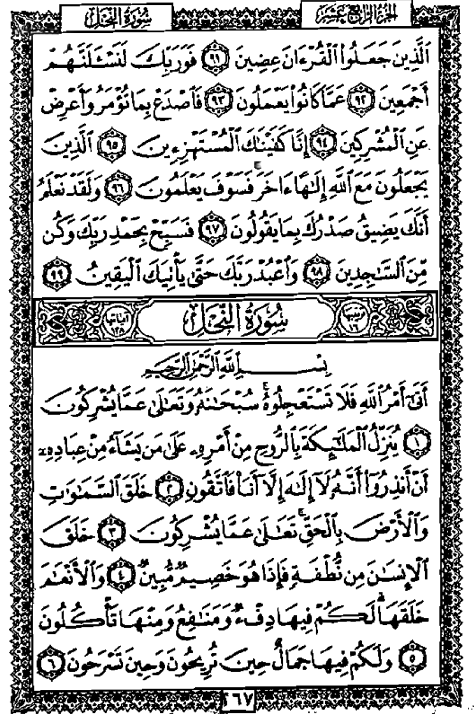 سُورَةُ النَّحْلِ
الجزء الرابع عشر
ٱلَّذِينَ جَعَلُوا۟ ٱلْقُرْءَانَ عِضِينَ ٩١ فَوَرَبِّكَ لَنَسْـَٔلَنَّهُمْ
أَجْمَعِينَ ٩٢ عَمَّا كَانُوا۟ يَعْمَلُونَ ٩٣ فَٱصْدَعْ بِمَا تُؤْمَرُ وَأَعْرِضْ
عَنِ ٱلْمُشْرِكِينَ ٩٤ إِنَّا كَفَيْنَٰكَ ٱلْمُسْتَهْزِءِينَ ٩٥ ٱلَّذِينَ
يَجْعَلُونَ مَعَ ٱللَّهِ إِلَٰهًا ءَاخَرَ ۚ فَسَوْفَ يَعْلَمُونَ ٩٦ وَلَقَدْ نَعْلَمُ
أَنَّكَ يَضِيقُ صَدْرُكَ بِمَا يَقُولُونَ ٩٧ فَسَبِّحْ بِحَمْدِ رَبِّكَ وَكُن
مِّنَ ٱلسَّٰجِدِينَ ٩٨ وَٱعْبُدْ رَبَّكَ حَتَّىٰ يَأْتِيَكَ ٱلْيَقِينُ ٩٩
ترتيبها ١٦ سُورَةُ النَّحْلِ آياتها ١٢٨
بِسْمِ ٱللَّهِ ٱلرَّحْمَٰنِ ٱلرَّحِيمِ
أَتَىٰٓ أَمْرُ ٱللَّهِ فَلَا تَسْتَعْجِلُوهُ ۚ سُبْحَٰنَهُۥ وَتَعَٰلَىٰ عَمَّا يُشْرِكُونَ
١ يُنَزِّلُ ٱلْمَلَٰٓئِكَةَ بِٱلرُّوحِ مِنْ أَمْرِهِۦ عَلَىٰ مَن يَشَآءُ مِنْ عِبَادِهِۦٓ
أَنْ أَنذِرُوٓا۟ أَنَّهُۥ لَآ إِلَٰهَ إِلَّآ أَنَا۠ فَٱتَّقُونِ ٢ خَلَقَ ٱلسَّمَٰوَٰتِ
وَٱلْأَرْضَ بِٱلْحَقِّ ۚ تَعَٰلَىٰ عَمَّا يُشْرِكُونَ ٣ خَلَقَ
ٱلْإِنسَٰنَ مِن نُّطْفَةٍ فَإِذَا هُوَ خَصِيمٌ مُّبِينٌ ٤ وَٱلْأَنْعَٰمَ
خَلَقَهَا ۗ لَكُمْ فِيهَا دِفْءٌ وَمَنَٰفِعُ وَمِنْهَا تَأْكُلُونَ
٥ وَلَكُمْ فِيهَا جَمَالٌ حِينَ تُرِيحُونَ وَحِينَ تَسْرَحُونَ ٦
٢٦٧